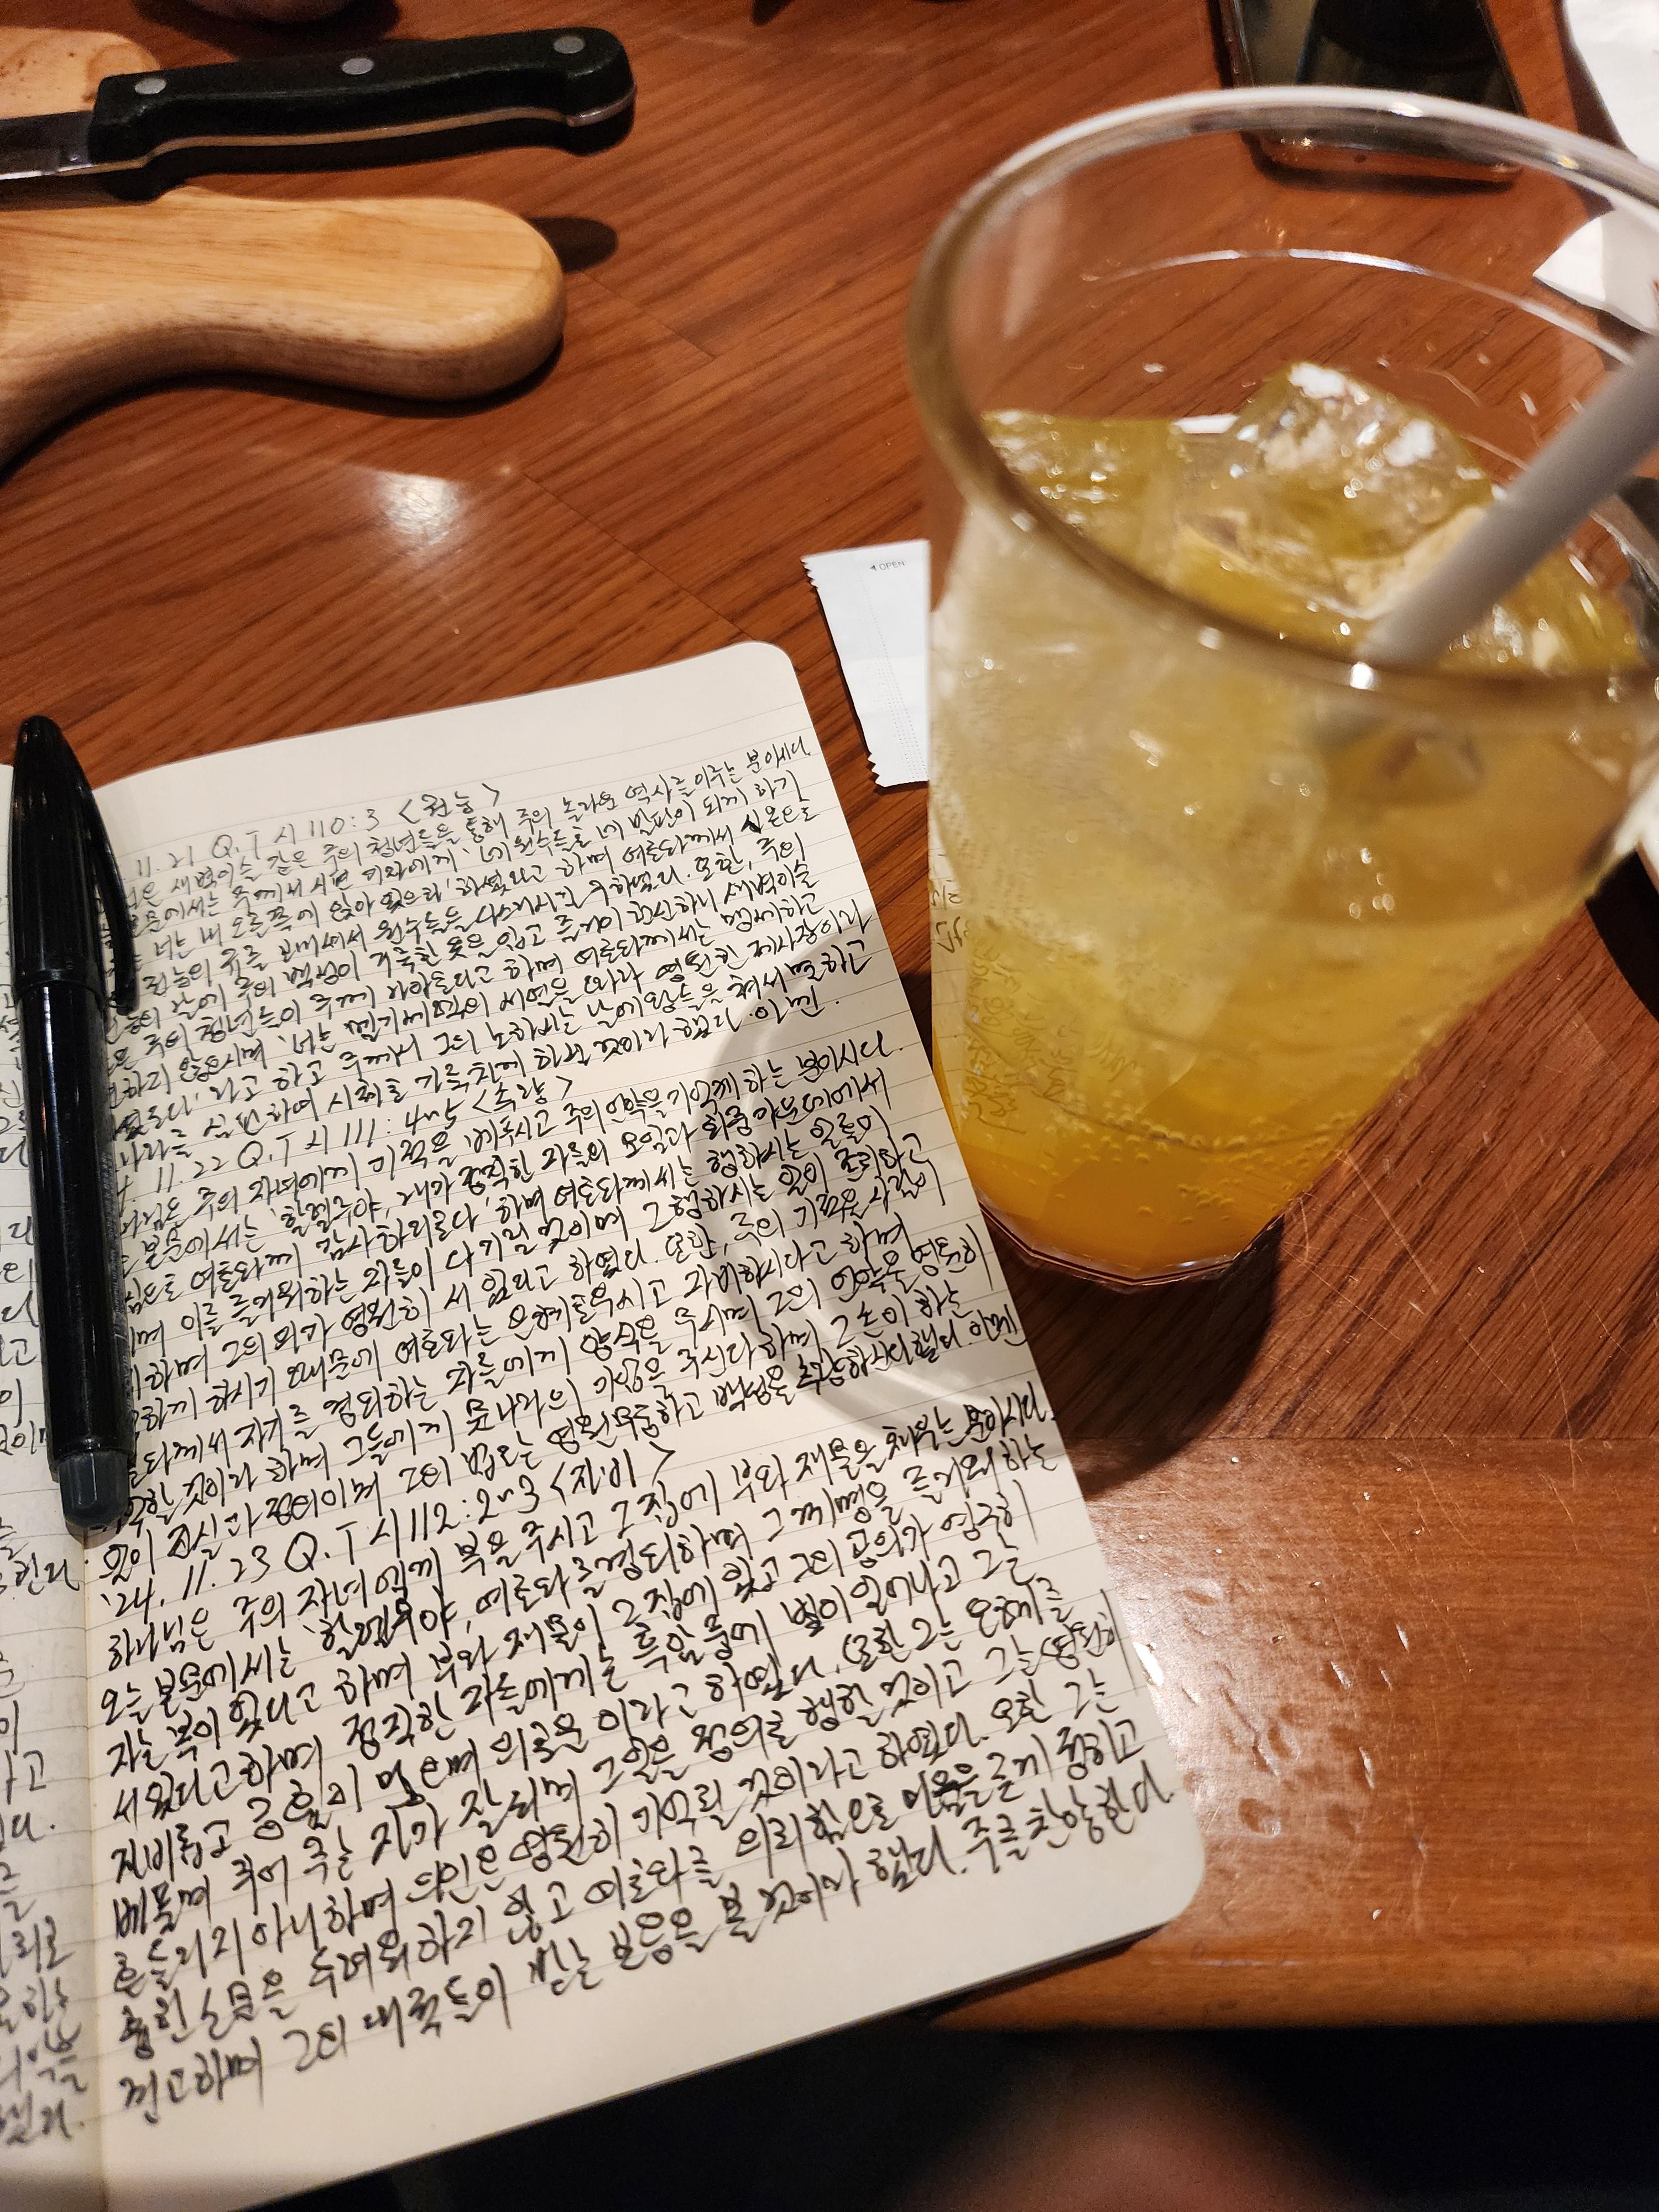 ◀ OPEN
11.21 Q.T 시 110:3 <권능>
새벽이슬 같은 주의 청년들을 통해 주의 놀라운 역사를 이루는 분이시다.
본문에서는 주께서 시편 기자에게 '네 원수들을 네 발판이 되게 하기
너는 내 오른쪽에 앉아 있으라' 하셨다고 하며 여호와께서 시온으로
권능의 규를 보내셔서 원수들을 다스리시길 구하였다. 또한, 주의
날에 주의 백성이 거룩한 옷을 입고 즐거이 헌신하니 새벽이슬
주의 청년들이 주께 나아온다고 하며 여호와께서는 맹세하고
하지 않으시며 '너는 멜기세덱의 서열을 따라 영원한 제사장이라
라고 하고 주께서 그의 노하시는 날에 왕들을 쳐서 멸하고
나라를 심판하여 시체로 가득하게 하실 것이라 했다. 아멘.
11.22 Q.T 시 111:4~5 <속량>
주의 자녀에게 기적을 베푸시고 주의 언약을 기억케 하는 분이시다.
본문에서는 '할렐루야, 내가 정직한 자들의 모임과 회중 가운데에서
여호와께 감사하리로다' 하며 여호와께서는 행하시는 일들이
이를 즐거워하는 자들이 다 기릴 것이며 그 행하시는 일이 존귀하고
하며 그의 의가 영원히 서 있다고 하였다. 또한, 주의 기적을 사람이
하게 하시기 때문에 여호와는 은혜로우시고 자비하시다고 하며
여호와께서 자기를 경외하는 자들에게 양식을 주시며 그의 언약을 영원히
것이라 하며 그들에게 뭇나라의 기업을 주신다 하며 그 손이 하는
일이 진실과 정의이며 그의 법도는 영원무궁하고 백성을 속량하신다 했다. 아멘
'24. 11. 23 Q.T 시 112:2~3 <자비>
하나님은 주의 자녀에게 복을 주시고 그 집에 부와 재물을 채우는 분이시다.
오늘 본문에서는 '할렐루야, 여호와를 경외하며 그 계명을 즐거워하는
자는 복이 있다고 하며 부와 재물이 그 집에 있고 그의 공의가 영구히
서 있다고 하며 정직한 자들에게는 흑암 중에 빛이 일어나고 그는
자비롭고 긍휼이 많으며 의로운 이라고 하였다. 또한 그는 은혜를
베풀며 꾸어 주는 자가 잘 되며 그 일을 정의로 행할 것이고 그는 영원히
흔들리지 아니하며 의인은 영원히 기억될 것이라고 하였다. 또한 그는
흉한 소문을 두려워하지 않고 여호와를 의뢰함으로 마음을 굳게 정하고
견고하며 그의 대적들이 받는 보응을 볼 것이라 했다. 주를 찬양한다.